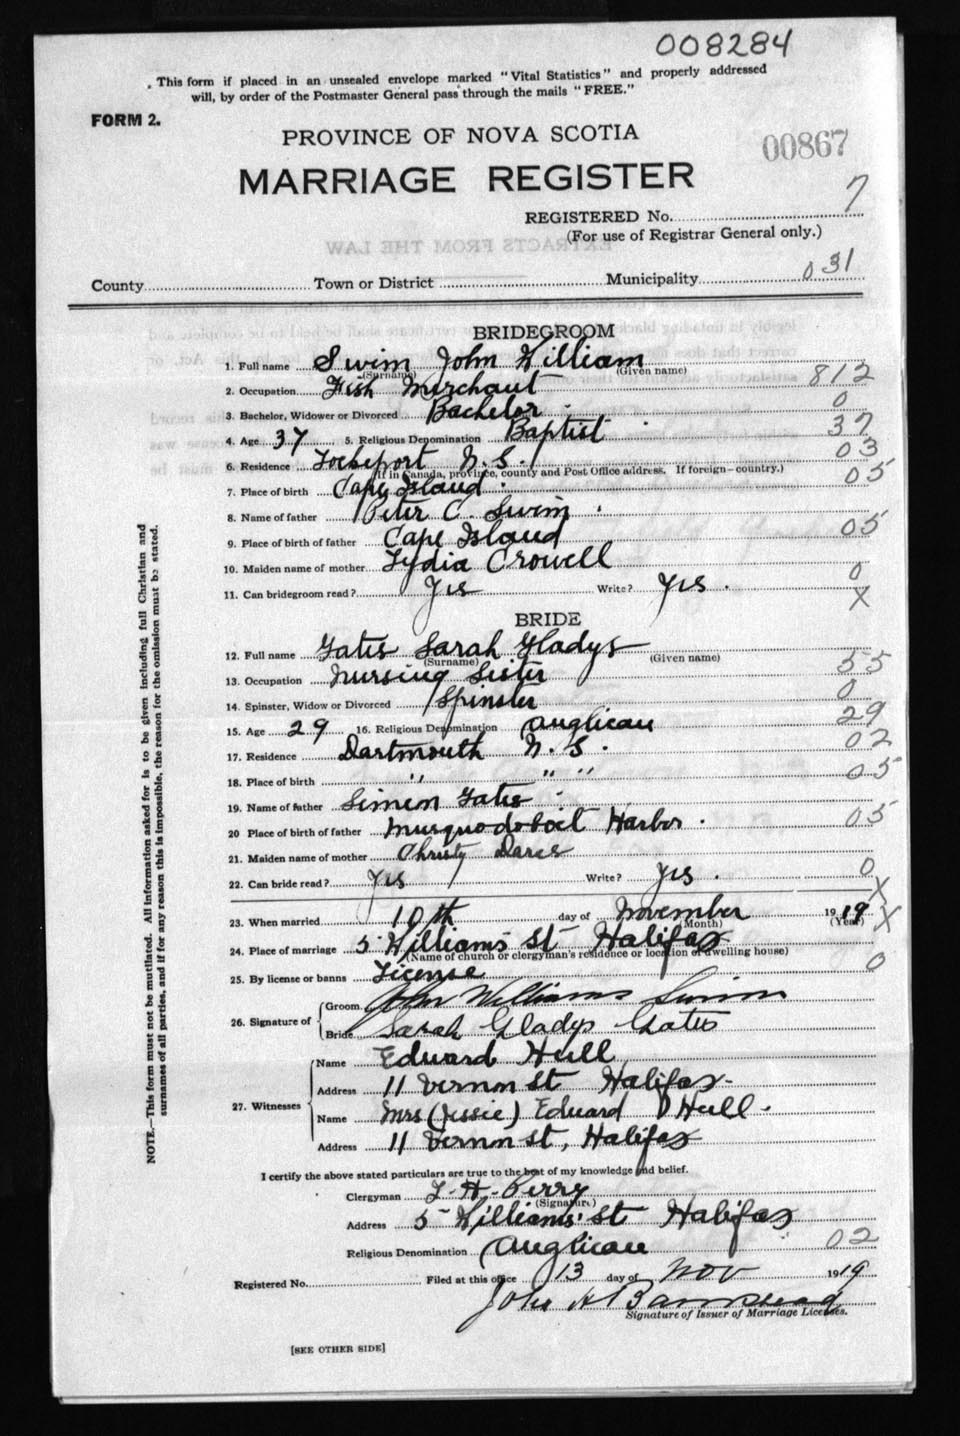 008284
This form if placed in an unsealed envelope marked "Vital Statistics" and properly addressed
will, by order of the Postmaster General pass through the mails "FREE."
FORM 2.
PROVINCE OF NOVA SCOTIA
00867
MARRIAGE REGISTER
REGISTERED No. 7
(For use of Registrar General only.)
EXTRACTS FROM THE LAW
County Town or District Municipality 031
BRIDEGROOM
1. Full name Swim John William
(Surname) (Given name)
2. Occupation Fish Merchant 812
3. Bachelor, Widower or Divorced Bachelor 0
4. Age 37 5. Religious Denomination Baptist 37
6. Residence Lockeport N.S. 03
(If in Canada, province, county and Post Office address. If foreign-country.)
7. Place of birth Cape Island 05
8. Name of father Peter C. Swim
9. Place of birth of father Cape Island 05
10. Maiden name of mother Lydia Crowell
11. Can bridegroom read? Yes Write? Yes. 0
X
BRIDE
12. Full name Gates Sarah Gladys
(Surname) (Given name)
13. Occupation Nursing Sister 55
14. Spinster, Widow or Divorced Spinster 0
15. Age 29 16. Religious Denomination Anglican 29
17. Residence Dartmouth N.S. 02
18. Place of birth " " " 05
19. Name of father Simon Gates
20 Place of birth of father Musquodoboit Harbor. 05
21. Maiden name of mother Christy
22. Can bride read? Yes Write? Yes. 0
X
23. When married 10th day of November 1919 X
(Month) (Year)
24. Place of marriage 5 Williams St Halifax
(Name of church or clergyman's residence or location of dwelling house)
25. By license or banns License 0
26. Signature of Groom John Williams Swim
Bride Sarah Gladys Gates
27. Witnesses Name Edward
Address 11 Vernon St Halifax-
Name Mrs (Jessie) Edward
Address 11 Vernon St, Halifax
I certify the above stated particulars are true to the best of my knowledge and belief.
Clergyman Perry
(Signature)
Address 5 Williams' St Halifax
Religious Denomination Anglican 02
Registered No. Filed at this office 13 day of Nov 1919
John H
Signature of Issuer of Marriage Licenses.
[SEE OTHER SIDE]
NOTE.—This form must not be mutilated. All information asked for is to be given including full Christian and
surnames of all parties, and if for any reason this is impossible, the reason for the omission must be stated.